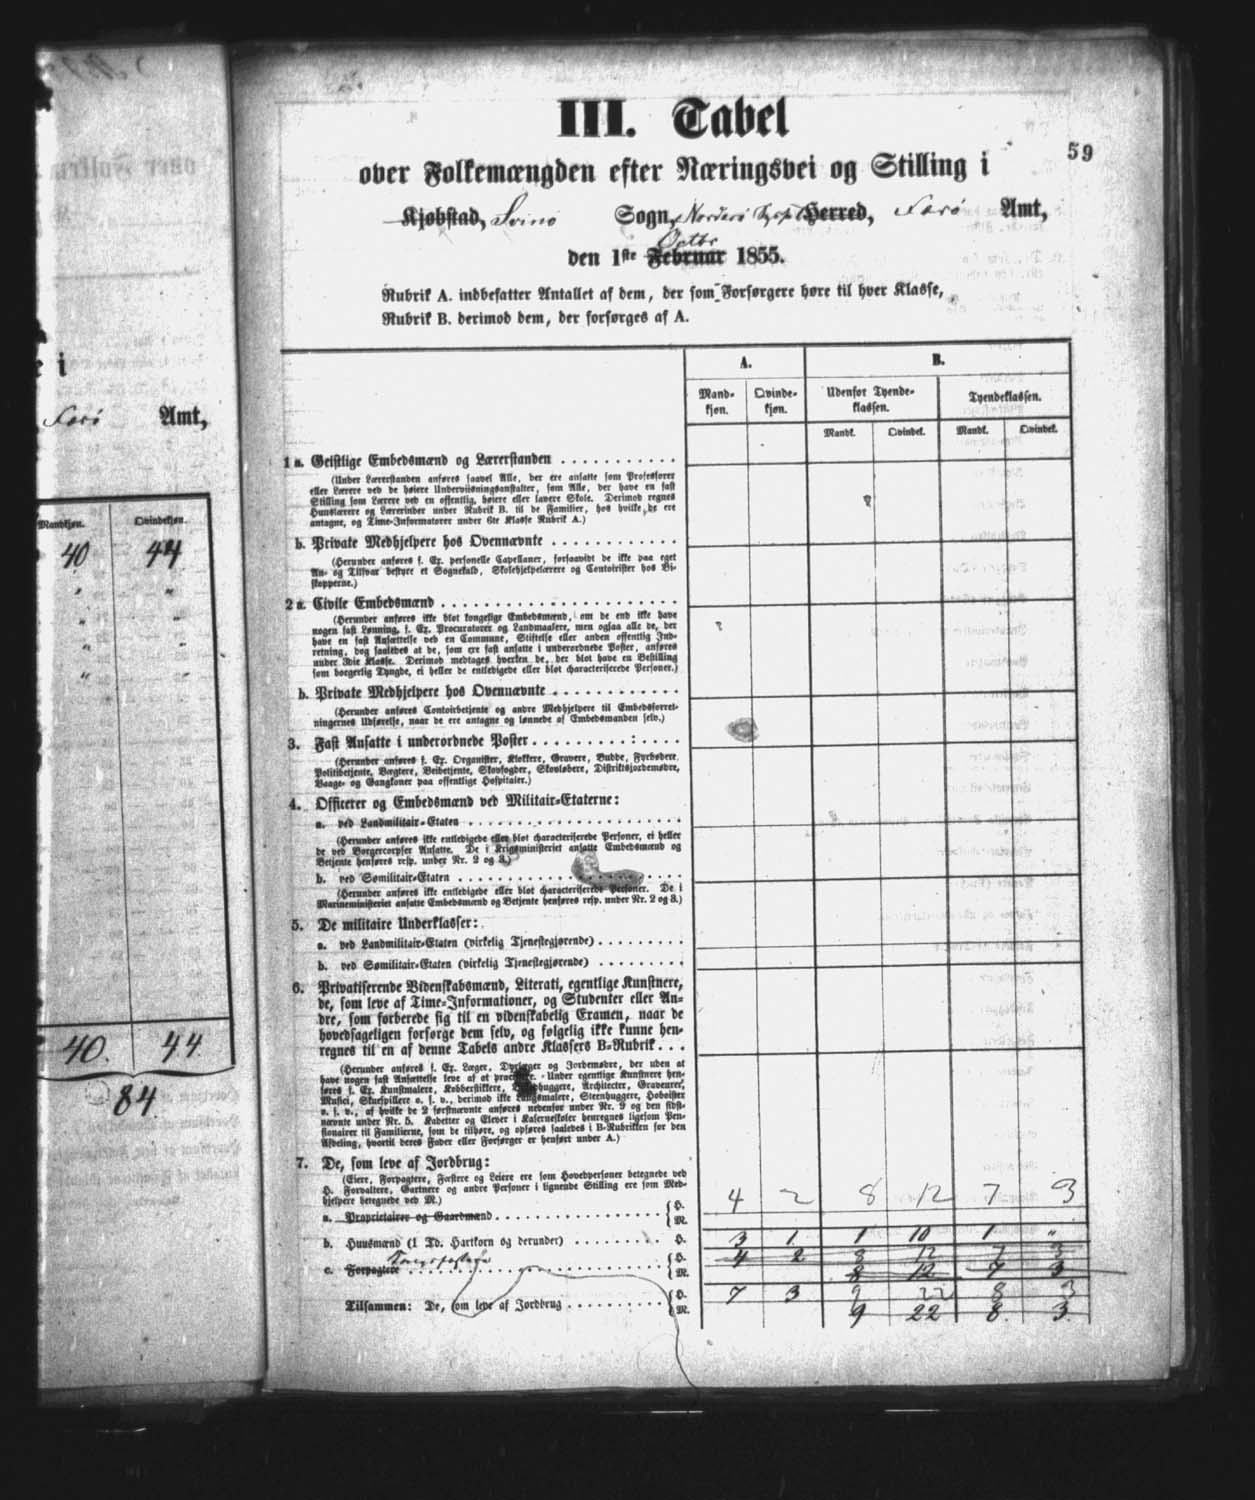 Færø Amt,
Mandkjøn. Qvindekjøn.
40 44
" "
" "
" "
40. 44
84
59
III. Tabel
over Folkemængden efter Næringsvei og Stilling i
Kjøbstad, Svinø Sogn, Norderø Syssel Herred, Færø Amt,
Octbr
den 1ste Februar 1855.
Rubrik A. indbefatter Antallet af dem, der som Forsørgere høre til hver Klasse,
Rubrik B. derimod dem, der forsørges af A.
A. B.
Mandkjøn. Qvindekjøn. Udenfor Tyendeklassen. Tyendeklassen.
Mandk. Qvindek. Mandk. Qvindek.
1 a. Geistlige Embedsmænd og Lærerstanden
(Under Lærerstanden anføres saavel Alle, der ere ansatte som Professorer
eller Lærere ved de høiere Underviisningsanstalter, som Alle, der have en fast
Stilling som Lærere ved en offentlig, høiere eller lavere Skole. Derimod regnes
Huuslærere og Lærerinder under Rubrik B. til de Familier, hos hvilke de ere
antagne, og Time-Informatorer under 6te Klasse Rubrik A.)
b. Private Medhjelpere hos Ovennævnte
(Herunder anføres f. Ex. personelle Capellaner, forsaavidt de ikke paa eget
An- og Tilsvar bestyre et Sognekald, Skolehjelpelærere og Contoirister hos Bi-
skopperne.)
2 a. Civile Embedsmænd
(Herunder anføres ikke blot kongelige Embedsmænd, om de end ikke have
nogen fast Lønning, f. Ex. Procuratorer og Landmaalere, men ogsaa alle de, der
have en fast Ansættelse ved en Commune, Stiftelse eller anden offentlig Ind-
retning, dog saaledes at de, som ere fast ansatte i underordnede Poster, anføres
under 3die Klasse. Derimod medtages hverken de, der blot have en Bestilling
som borgerlig Tyngde, ei heller de entledigede eller blot characteriserede Personer.)
b. Private Medhjelpere hos Ovennævnte
(Herunder anføres Contoirbetjente og andre Medhjelpere til Embedsforret-
ningernes Udførelse, naar de ere antagne og lønnede af Embedsmanden selv.)
3. Fast Ansatte i underordnede Poster
(Herunder anføres f. Ex. Organister, Klokkere, Gravere, Budde, Fyrbødere,
Politibetjente, Vægtere, Veibetjente, Skovfogder, Skovløbere, Distriktsjordemødre,
Vaage- og Gangkoner paa offentlige Hospitaler.)
4. Officerer og Embedsmænd ved Militair-Etaterne:
a. ved Landmilitair-Etaten
(Herunder anføres ikke entledigede eller blot characteriserede Personer, ei heller
de ved Borgercorpser Ansatte. De i Krigsministeriet ansatte Embedsmænd og
Betjente henføres resp. under Nr. 2 og 3.)
b. ved Sømilitair-Etaten
(Herunder anføres ikke entledigede eller blot characteriserede Personer. De i
Marineministeriet ansatte Embedsmænd og Betjente henføres resp. under Nr. 2 og 3.)
5. De militaire Underklasser:
a. ved Landmilitair-Etaten (virkelig Tjenestegjørende)
b. ved Sømilitair-Etaten (virkelig Tjenestegjørende)
6. Privatiserende Videnskabsmænd, Literati, egentlige Kunstnere,
de, som leve af Time-Informationer, og Studenter eller An-
dre, som forberede sig til en videnskabelig Examen, naar de
hovedsageligen forsørge dem selv, og følgelig ikke kunne hen-
regnes til en af denne Tabels andre Klassers B-Rubrik
(Herunder anføres f. Ex. Læger, Dyrlæger og Jordemødre, der uden at
have nogen fast Ansættelse leve af at practisere. Under egentlige Kunstnere hen-
føres f. Ex. Kunstmalere, Kobberstikkere, Billedhuggere, Architecter, Graveurer,
Musici, Skuespillere o. s. v., derimod ikke Langsmalere, Steenhuggere, Hoboister
o. s. v., af hvilke de 2 førstnævnte anføres nedenfor under Nr. 9 og den sidst-
nævnte under Nr. 5. Kadetter og Elever i Kaserneskoler henregnes ligesom Pen-
sionairer til Familierne, som de tilhøre, og opføres saaledes i B-Rubrikken for den
Afdeling, hvortil deres Fader eller Forsørger er henført under A.)
7. De, som leve af Jordbrug:
(Eiere, Forpagtere, Fæstere og Leiere ere som Hovedpersoner betegnede ved
H. Forvaltere, Gartnere og andre Personer i lignende Stilling ere som Med-
hjelpere betegnede ved M.)
a. Proprietairer og Gaardmænd H. 4 2 8 12 7 3
M.
b. Huusmænd (1 Td. Hartkorn og derunder) H. 3 1. 1 10 1. "
c. Forpagtere H. 4 2 8 12 7 3
M. 8 12 7 3
Tilsammen: De, som leve af Jordbrug H. 7 3 9 22 8 3
M. 9 22 8. 3.